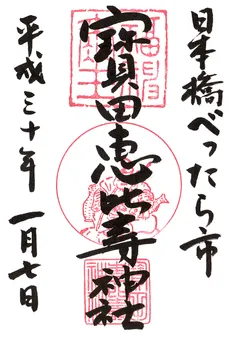 日本橋べったら市
寳田恵比寿神社
平成三十年 一月七日